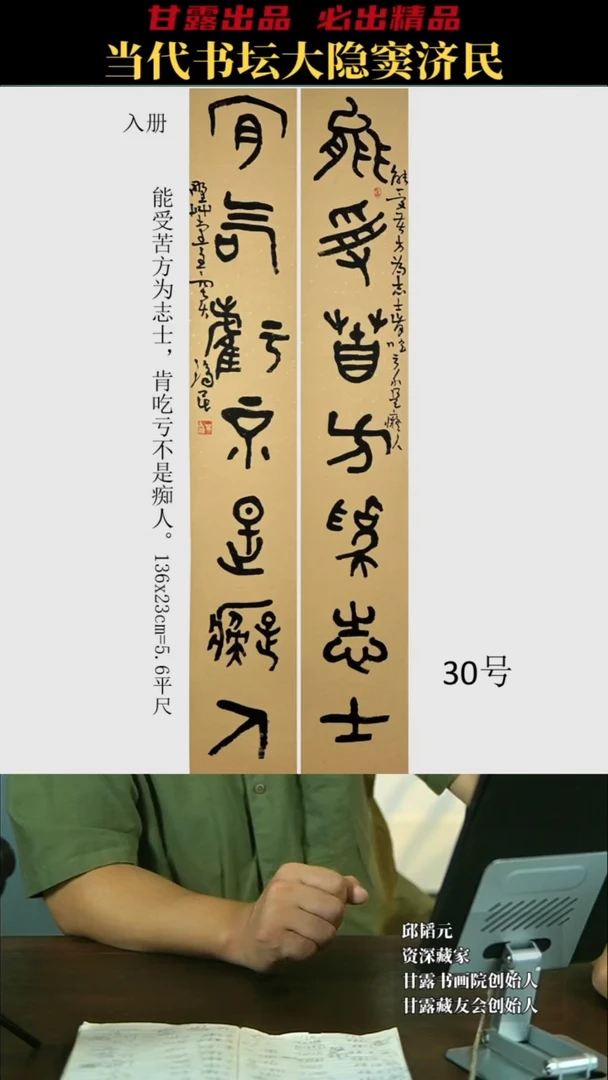 甘露出品 必出精品
当代书坛大隐窦济民
入册
能受苦方为志士，肯吃亏不是痴人。136x23cm=5.6平尺
能受苦方为志士
肯吃亏不是痴人
能受苦方为志士肯吃亏不是痴人
30号
邱韬元
资深藏家
甘露书画院创始人
甘露藏友会创始人